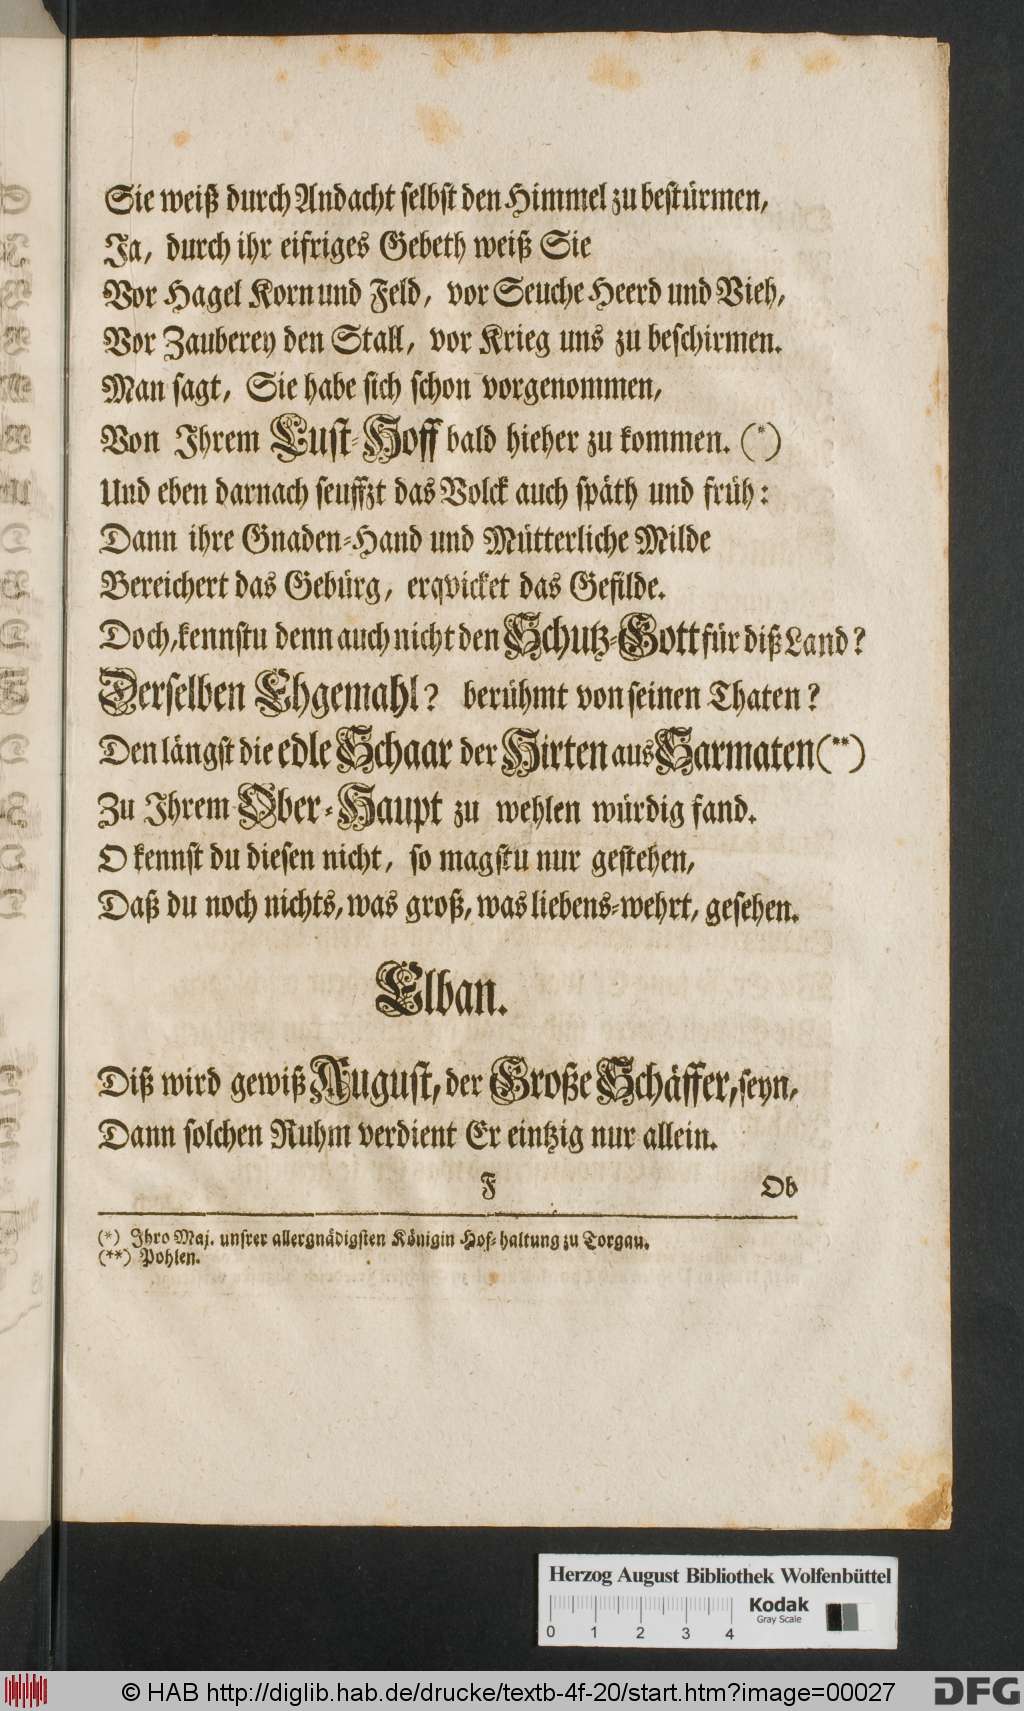 Sie weiß durch Andacht selbst den Himmel zu bestürmen,
Ja, durch ihr eifriges Gebeth weiß Sie
Vor Hagel Korn und Feld, vor Seuche Heerd und Vieh,
Vor Zauberey den Stall, vor Krieg uns zu beschirmen.
Man sagt, Sie habe sich schon vorgenommen,
Von Ihrem Lust-Hoff bald hieher zu kommen. (*)
Und eben darnach seuffzt das Volck auch späth und früh:
Dann ihre Gnaden-Hand und Mütterliche Milde
Bereichert das Gebürg, erqvicket das Gefilde.
Doch, kennstu denn auch nicht den Schutz-Gott für diß Land?
Derselben Ehgemahl? berühmt von seinen Thaten?
Den längst die edle Schaar der Hirten aus Sarmaten (**)
Zu Ihrem Ober-Haupt zu wehlen würdig fand.
O kennst du diesen nicht, so magstu nur gestehen,
Daß du noch nichts, was groß, was liebens-wehrt, gesehen.
Elban.
Diß wird gewiß August, der Große Schäffer, seyn,
Dann solchen Ruhm verdient Er eintzig nur allein.
F Ob
(*) Ihro Maj. unsrer allergnädigsten Königin Hof-haltung zu Torgau.
(**) Pohlen.
Herzog August Bibliothek Wolfenbüttel
Kodak
Gray Scale
0 1 2 3 4
© HAB http://diglib.hab.de/drucke/textb-4f-20/start.htm?image=00027
DFG